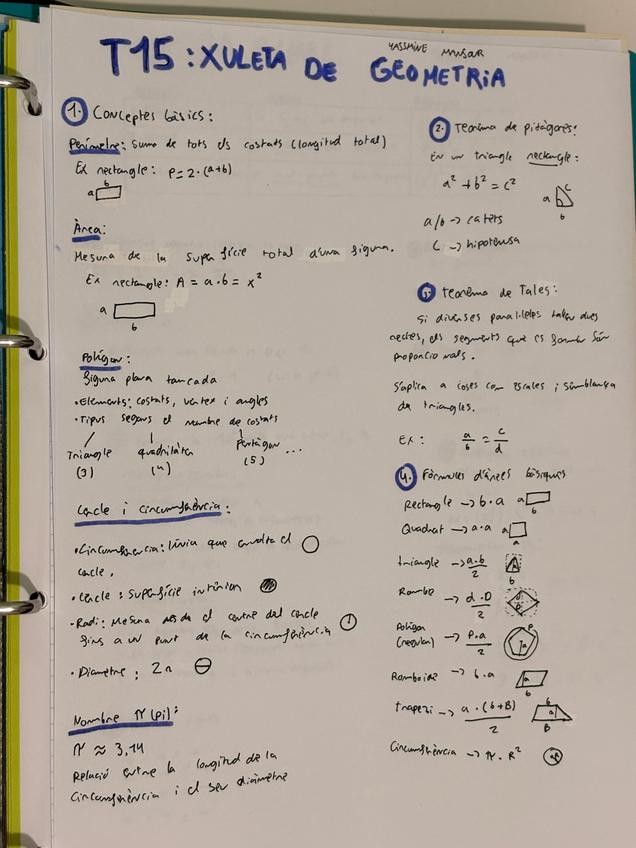 YASSMINE MANSOUR
T15: XULETA DE GEOMETRIA
1. Conceptes bàsics:
Perímetre: Suma de tots els costats (longitud total)
Ex rectangle: P = 2·(a+b)
b
a
Àrea:
Mesura de la superfície total d'una figura.
Ex rectangle: A = a·b = x²
a
b
Polígon:
figura plana tancada
• Elements: costats, vertex i angles
• Tipus segons el nombre de costats
Triangle (3) quadrilàter (4) Pentàgon (5) ...
Cercle i circumferència:
• Circumferència: línia que envolta el
cercle.
• Cercle: superfície interior
• Radi: Mesura des de el centre del cercle
fins a un punt de la circumferència
• Diametre: 2r
Nombre π (pi):
π ≈ 3,14
Relació entre la longitud de la
circumferència i el seu diàmetre
2. Teorema de pitàgores:
En un triangle rectangle:
a² + b² = c²
a c
b
a/b → catets
c → hipotenusa
Teorema de Tales:
Si diverses paral·leles tallen dues
rectes, els segments que es formen són
proporcionals.
S'aplica a coses com escales i semblança
de triangles.
Ex: a/b = c/d
4. Fórmules d'àrees bàsiques
Rectangle → b·a a b
Quadrat → a·a a a
triangle → a·b/2 b
Rombe → d·D/2
Polígon (regular) → P·a/2 P a
Romboide → b·a a b
trapezi → a·(b+B)/2 b a B
Circumferència → π·R² R